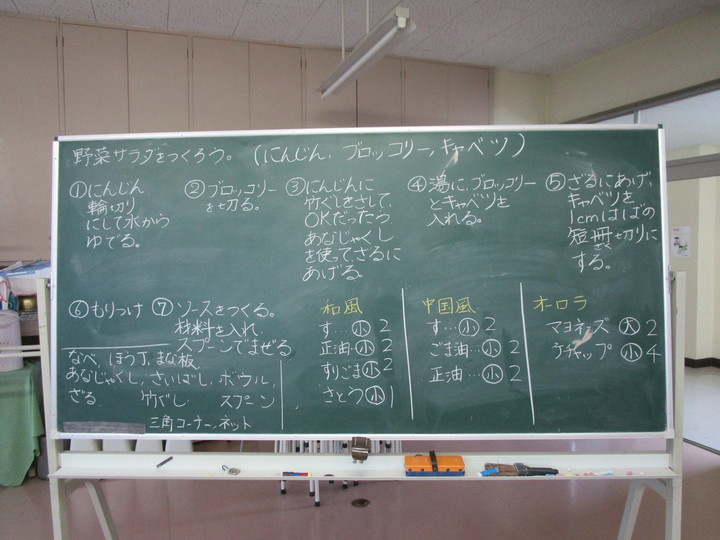 野菜サラダをつくろう。(にんじん、ブロッコリー、キャベツ)
①にんじん
輪切り
にして水から
ゆでる。
②ブロッコリー
を切る。
③にんじんに
竹ぐしをさして、
OKだったら
あなじゃくし
を使って、ざるに
あげる。
④湯に、ブロッコリー
とキャベツを
入れる。
⑤ざるにあげ、
キャベツを
1cmはばの
短冊切りに
ざく
する。
⑥もりつけ
⑦ソースをつくる。
材料を入れ、
スプーンでまぜる
なべ、ほう丁、まな板、
あなじゃくし、さいばし、ボウル、
ざる、竹ぐし、スプーン
三角コーナー、ネット
和風
す…小2
正油…小2
すりごま小2
さとう小1
中国風
す…小2
ごま油…小2
正油…小2
オーロラ
マヨネーズ大2
ケチャップ小4